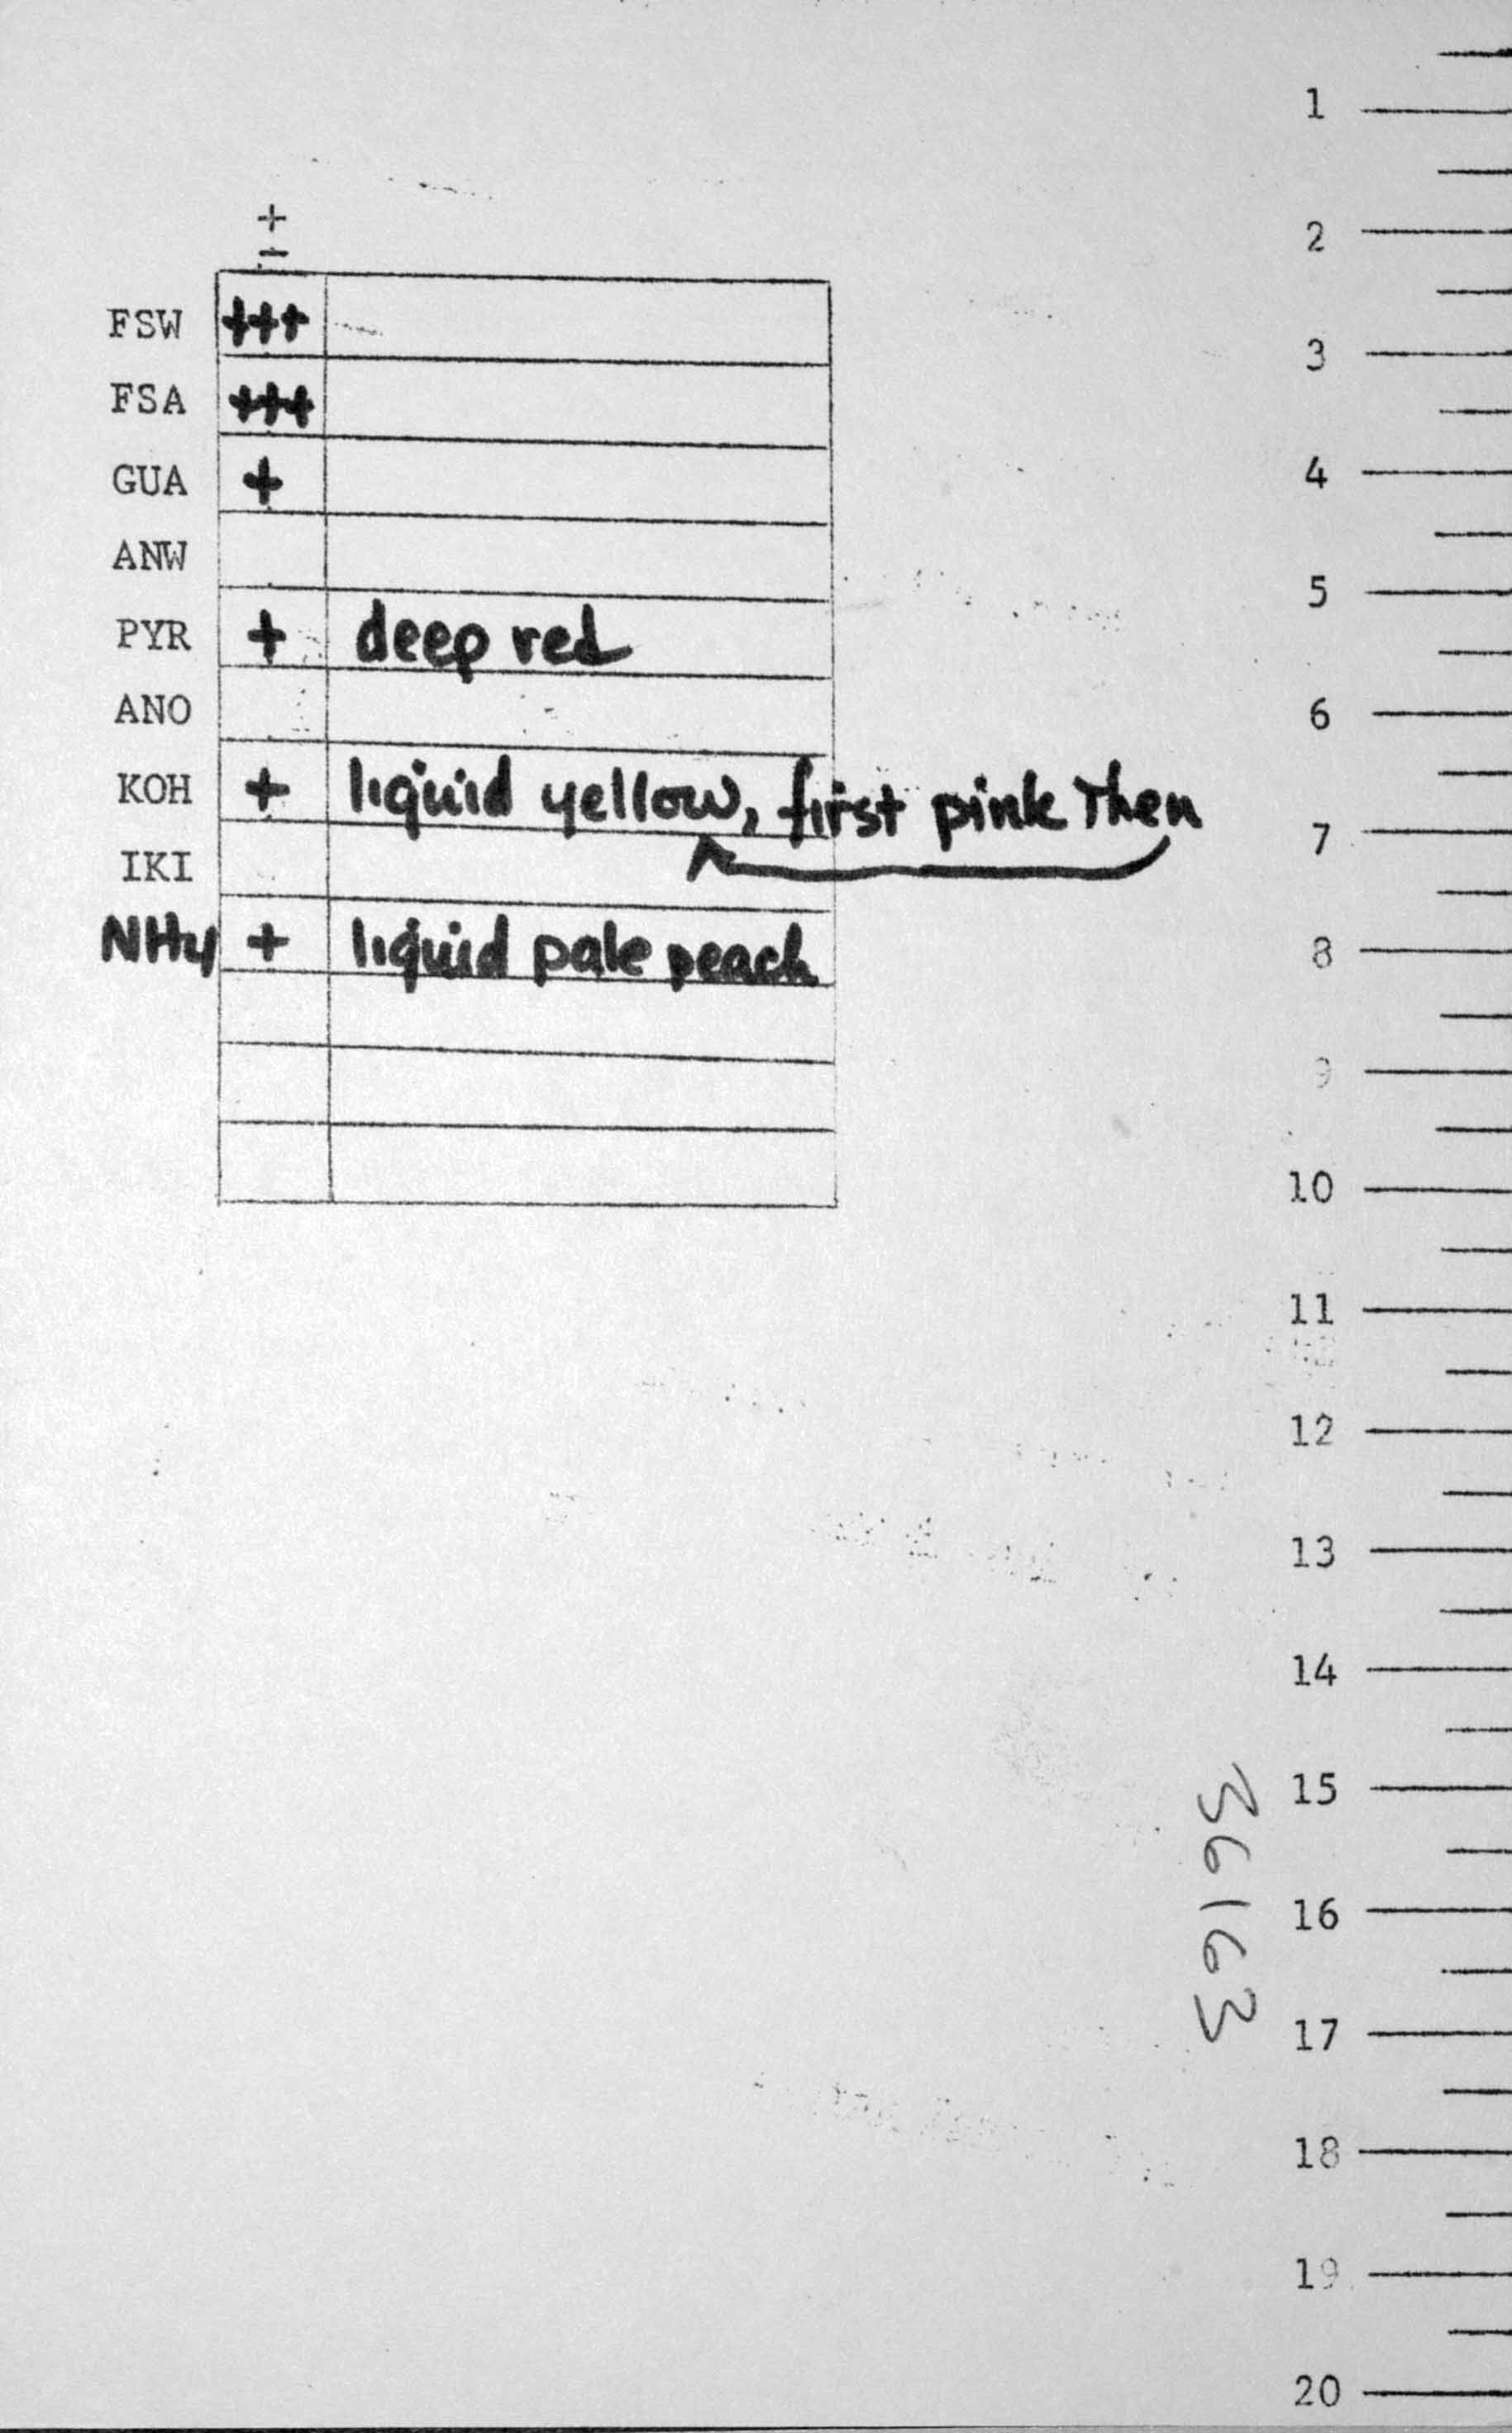 +
-
FSW +++
FSA +++
GUA +
ANW
PYR + deep red
ANO
KOH + liquid yellow, first pink then
IKI
NH4 + liquid pale peach
1
2
3
4
5
6
7
8
9
10
11
12
13
14
15
16
17
18
19
20
36163